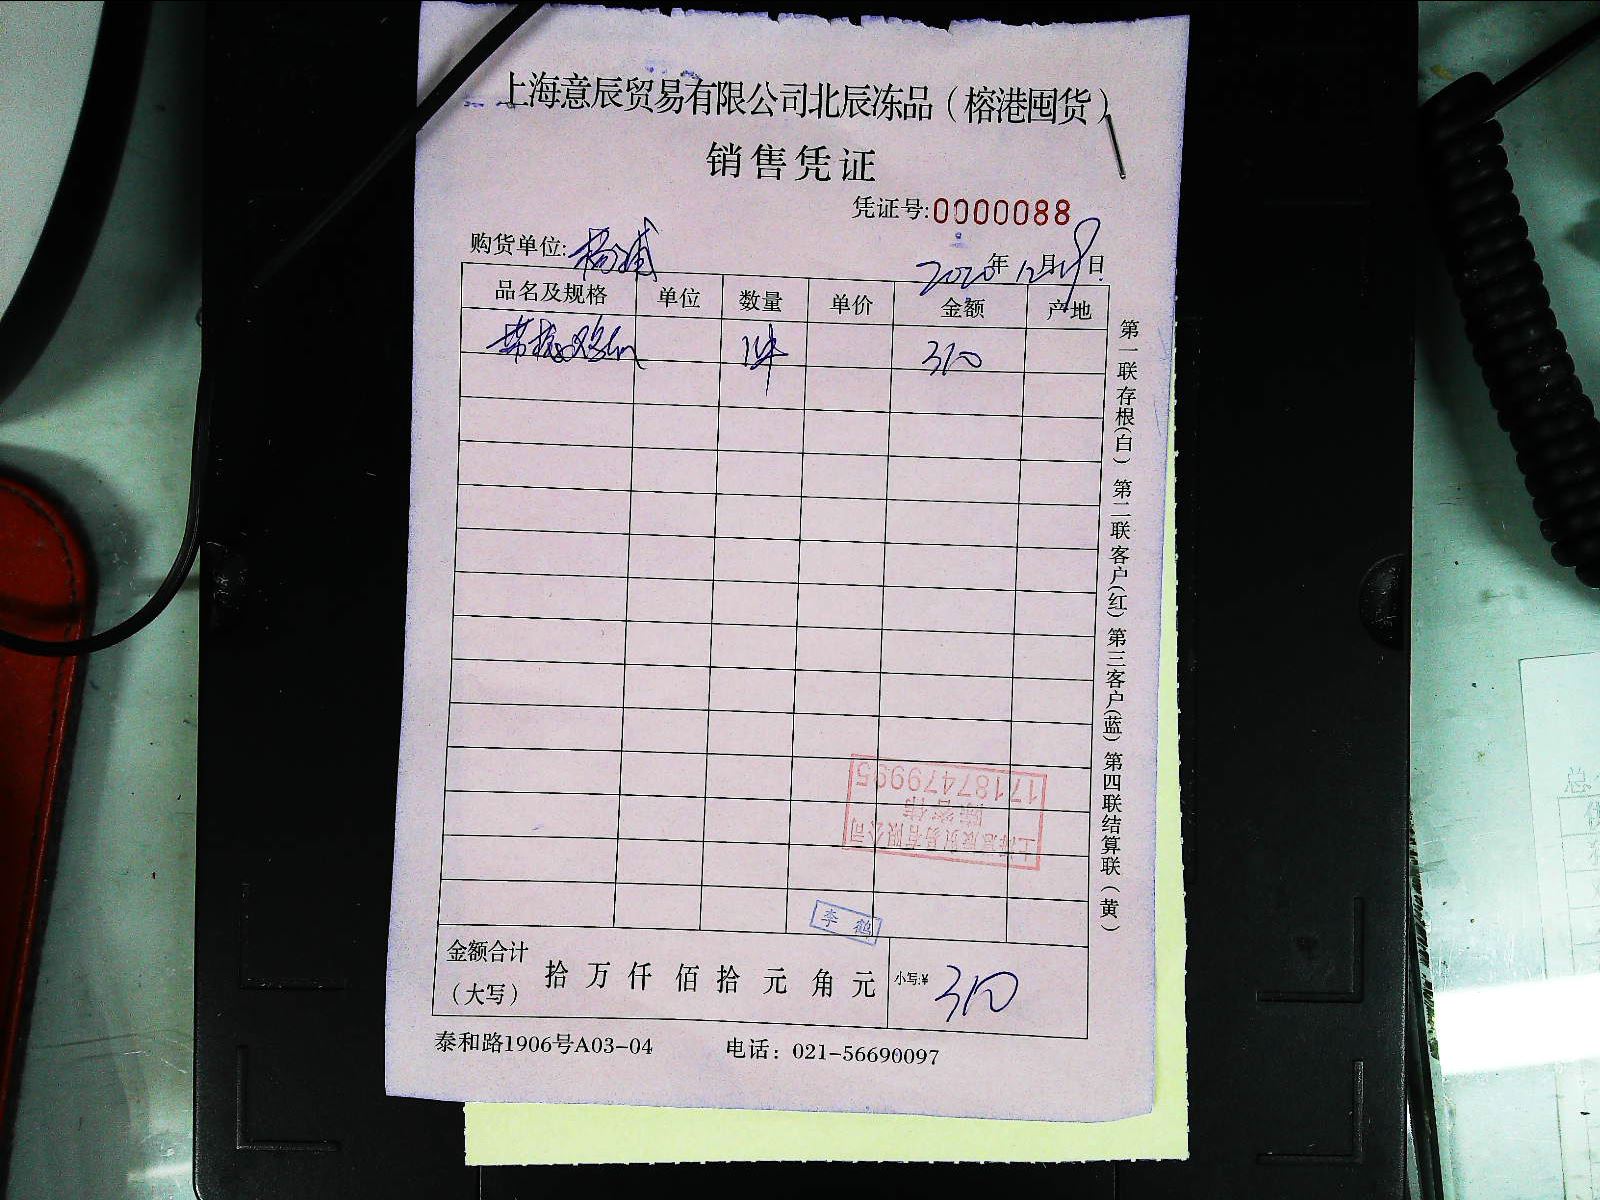 上海意辰贸易有限公司北辰冻品（榕港囤货）
销售凭证
凭证号:0000088
购货单位:杨浦
2020年12月19日
品名及规格 单位 数量 单价 金额 产地
1件 310
第一联存根(白) 第二联客户(红) 第三客户(蓝) 第四联结算联(黄)
17187479995
上海意辰贸易有限公司
李鹤
金额合计
（大写）
拾万仟佰拾元角元
小写:¥ 310
泰和路1906号A03-04 电话：021-56690097